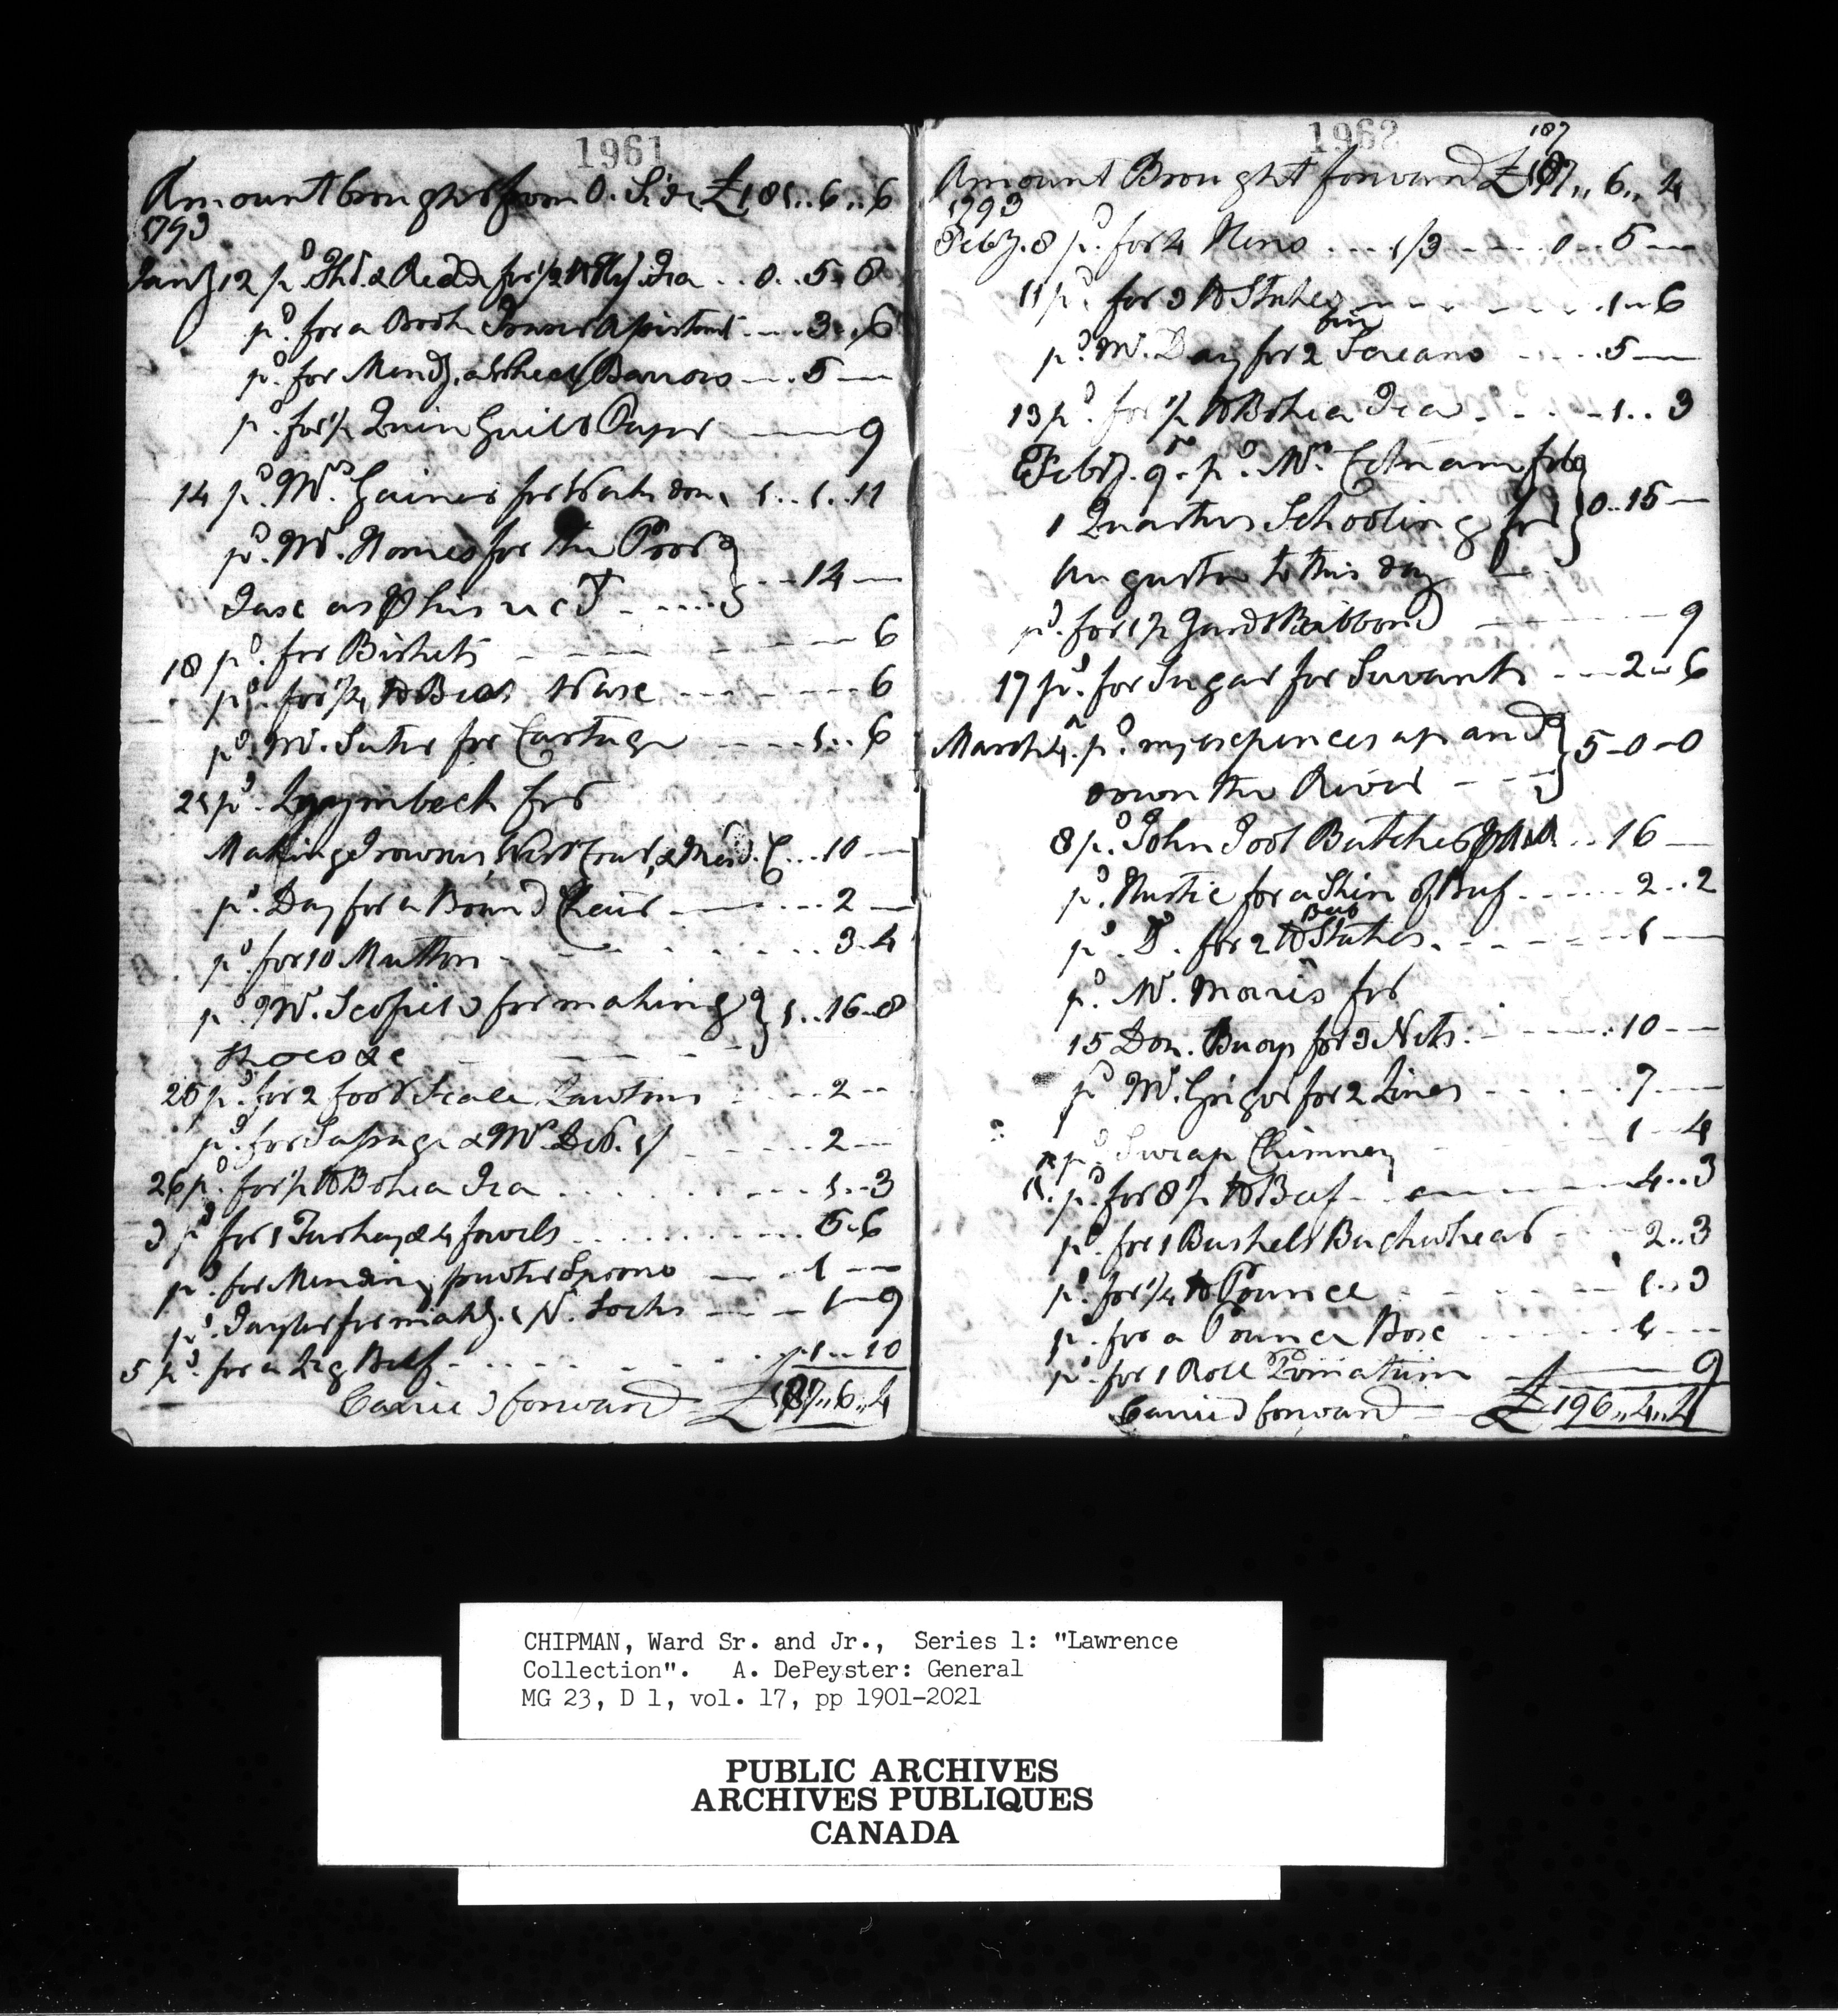 1961
Amount brought from O. Side £181..6..6
1793
Jany 12 pd. Thd. & Reada for 1/2 lb Hy. Tea .. 0..5-8
pd. for a Book ... 3-6
pd. for Mendg. a Wheel Barrow — .. 5 —
pd. for 1/2 Quire Guilt Paper — 9
14 pd. Mrs. Gaines for Work done 1..1..11
pd. Mr. Homes for the Poor
Taxe as Phis rect ..... 14 —
18 pd. for Biskets — 6
pd. for 1/4 lb Bees Waxe — 6
pd. Mr. Suter for Cartage — 1..6
21 pd. Lyymbeck for
Making Trowsers, West Coat, & Mend. C... 10 —
pd. Day for a Round Chair — ... 2 —
pd. for 10 Mutton - - - 3-4
pd. Mr. Scofield for making } 1..16-8
Shoes &c
25 pd. for 2 foot Scale Lawtons ... 2 --
pd. for Sausage & Mr. Deb. 1/ ... 2 —
26 pd. for 1/2 lb Bohea Tea ... 1..3
3 pd. for 1 Turkey & 4 fowels ... 5-6
pd. for Mending pewter Spoons — 1 —
pd. Taylor for makg. 1 N. Locks — 1-9
5 pd. for a Leg Beef ... 1..10
Carried forward £187,,6,,4
1962
187
Amount Brought forward £187,, 6,, 4
1793
Feby. 8 pd. for 4 Hens .... 1/3 --- 0..5 —
11 pd. for 3 lb Stakes - - - 1-6
fire
pd. Mr. Day for 2 Screans ..... 5 —
13 pd. for 1/2 lb Bohea Tea - - - 1..3
Feby. 9. pd. Mr. for
1 Quarters Schooling for } 0..15 —
Augusta to this day
pd. for 1 1/2 Yards Ribbond — 9
17 pd. for Sugar for Servants --- 2-6
March 4. pd. my expences up and } 5-0-0
down the River - -
8 pd. John Tool Butcher ... 16 —
pd. Hustice for a Shin of Beef ..... 2..2
Beef
pd. Do. for 2 lb Stakes. - - - 1 —
pd. Mr. Morris for
15 Doz. Buoys for 3 Nets: - - - 10 —
pd. Mr. Grigor for 2 Lines - - - 7 —
pd. Sweap Chimney - 1-4
pd. for 8 1/2 lb Beef - - 4..3
pd. for 1 Bushell Buckwheat - 2..3
pd. for 1/4 lb Pounce - - - 1..3
pd. for a Pounce Boxe - - - 1 --
pd. for 1 Roll Pomatum — 9
Carried forward — £196,,4,,4
CHIPMAN, Ward Sr. and Jr., Series 1: "Lawrence
Collection". A. DePeyster: General
MG 23, D 1, vol. 17, pp 1901-2021
PUBLIC ARCHIVES
ARCHIVES PUBLIQUES
CANADA